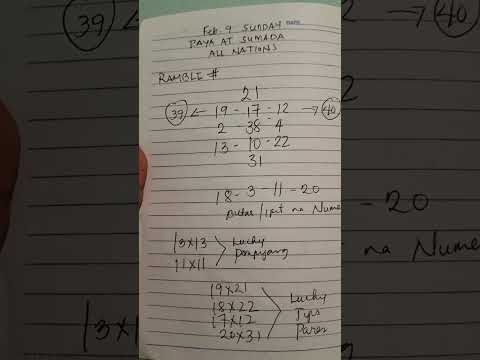 Feb. 9 SUNDAY
PAYA AT SUMADA
ALL NATIONS
RAMBLE #
21
39 ← 19 - 17 - 12 → 40
2 - 38 - 4
13 - 10 - 22
31
18 - 3 - 11 - 20
/ na Nume
13x13
11x11
Lucky
19x21
18x22
17x12
20x31
Lucky
Tips
Pares